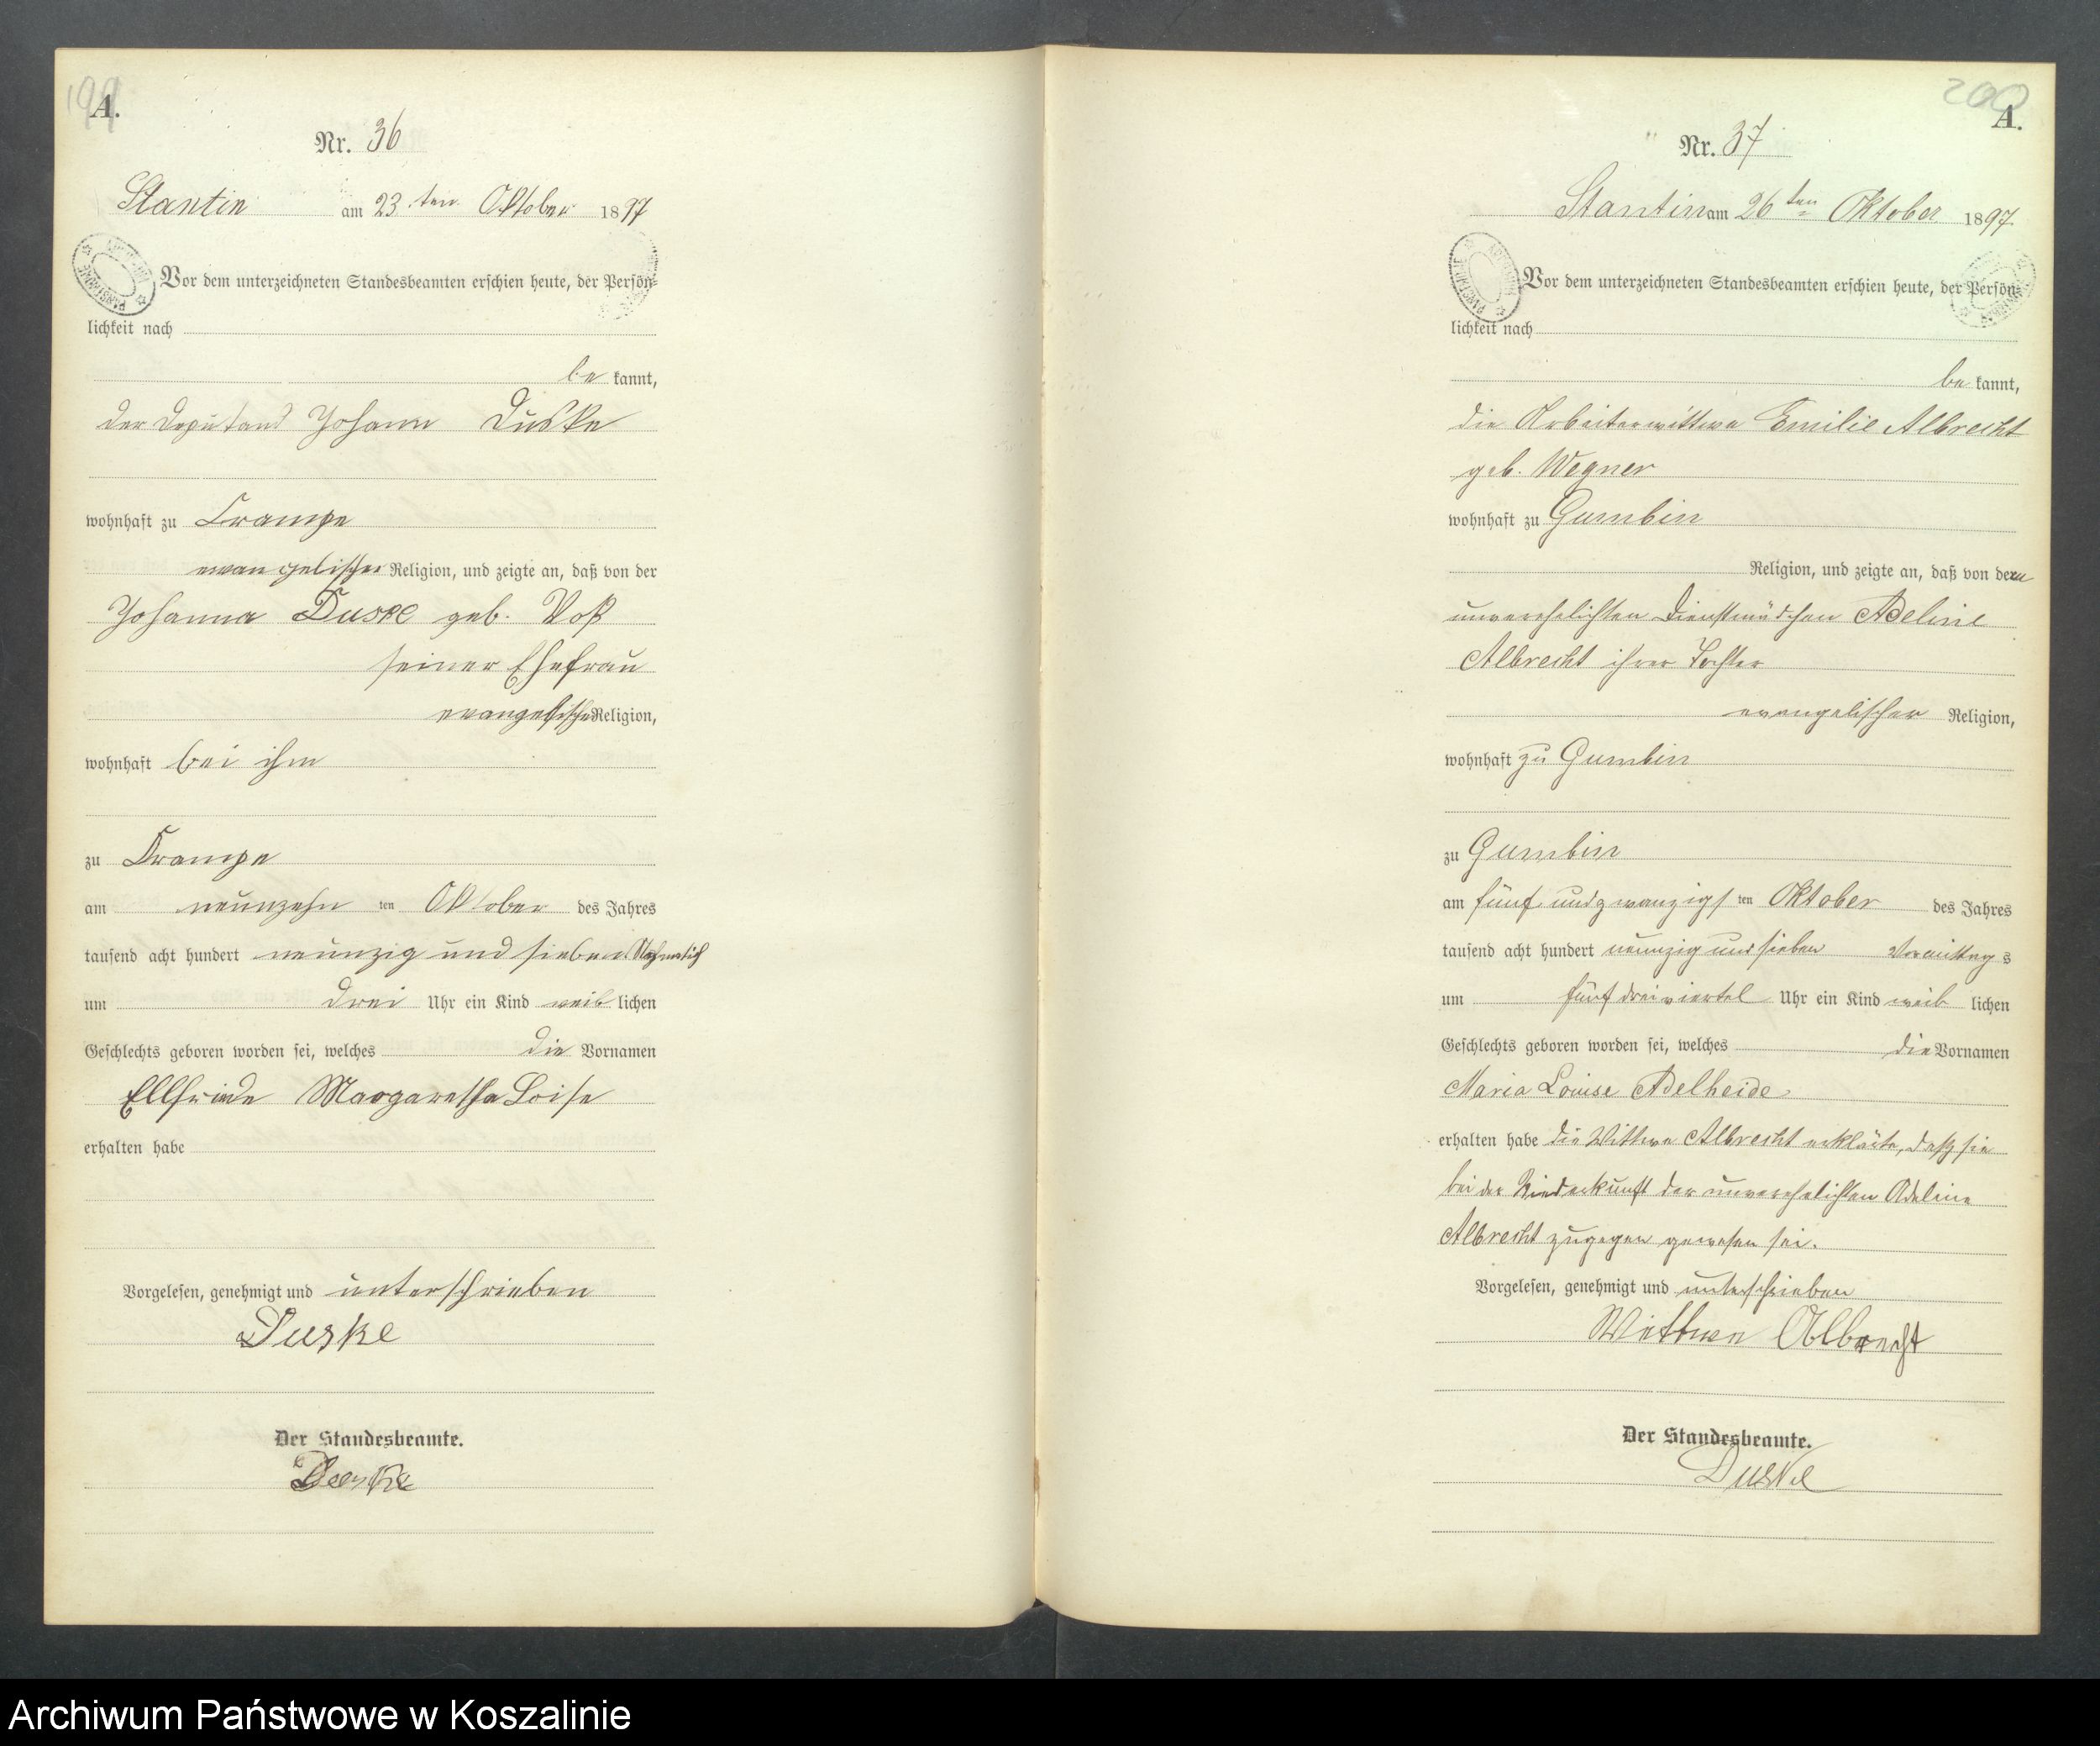 199
A.
Nr. 36
Stantin am 23.ten Oktober 1897
Vor dem unterzeichneten Standesbeamten erschien heute, der Persön-
lichkeit nach
be kannt,
der Deputand Johann Duske
wohnhaft zu Crampe
evangelischer Religion, und zeigte an, daß von der
Johanna Duske geb. Voß
seiner Ehefrau
evangelischer Religion,
wohnhaft bei ihm
zu Crampe
am neunzehn ten Oktober des Jahres
tausend acht hundert neunzig und sieben
um drei Uhr ein Kind weib lichen
Geschlechts geboren worden sei, welches die Vornamen
Ellfriede Margaretha Loise
erhalten habe
Vorgelesen, genehmigt und unterschrieben
Duske
Der Standesbeamte.
Duske
200
A.
Nr. 37
Stantin am 26ten Oktober 1897
Vor dem unterzeichneten Standesbeamten erschien heute, der Persön-
lichkeit nach
be kannt,
die Arbeiterwittwe Emilie Albrecht
geb. Wegner
wohnhaft zu Gumbin
Religion, und zeigte an, daß von der
unverehelichten Dienstmädchen Adeline
Albrecht ihrer Tochter
evangelischer Religion,
wohnhaft zu Gumbin
zu Gumbin
am fünf und zwanzigs ten Oktober des Jahres
tausend acht hundert neunzig und sieben Vormittag s
um fünf dreiviertel Uhr ein Kind weib lichen
Geschlechts geboren worden sei, welches die Vornamen
Maria Louise Adelheide
erhalten habe die Wittwe Albrecht erklärte, daß sie
bei der Niederkunft der unverehelichten Adeline
Albrecht zugegen gewesen sei.
Vorgelesen, genehmigt und unterschrieben
Wittwe Albrecht
Der Standesbeamte.
Duske
Archiwum Państwowe w Koszalinie